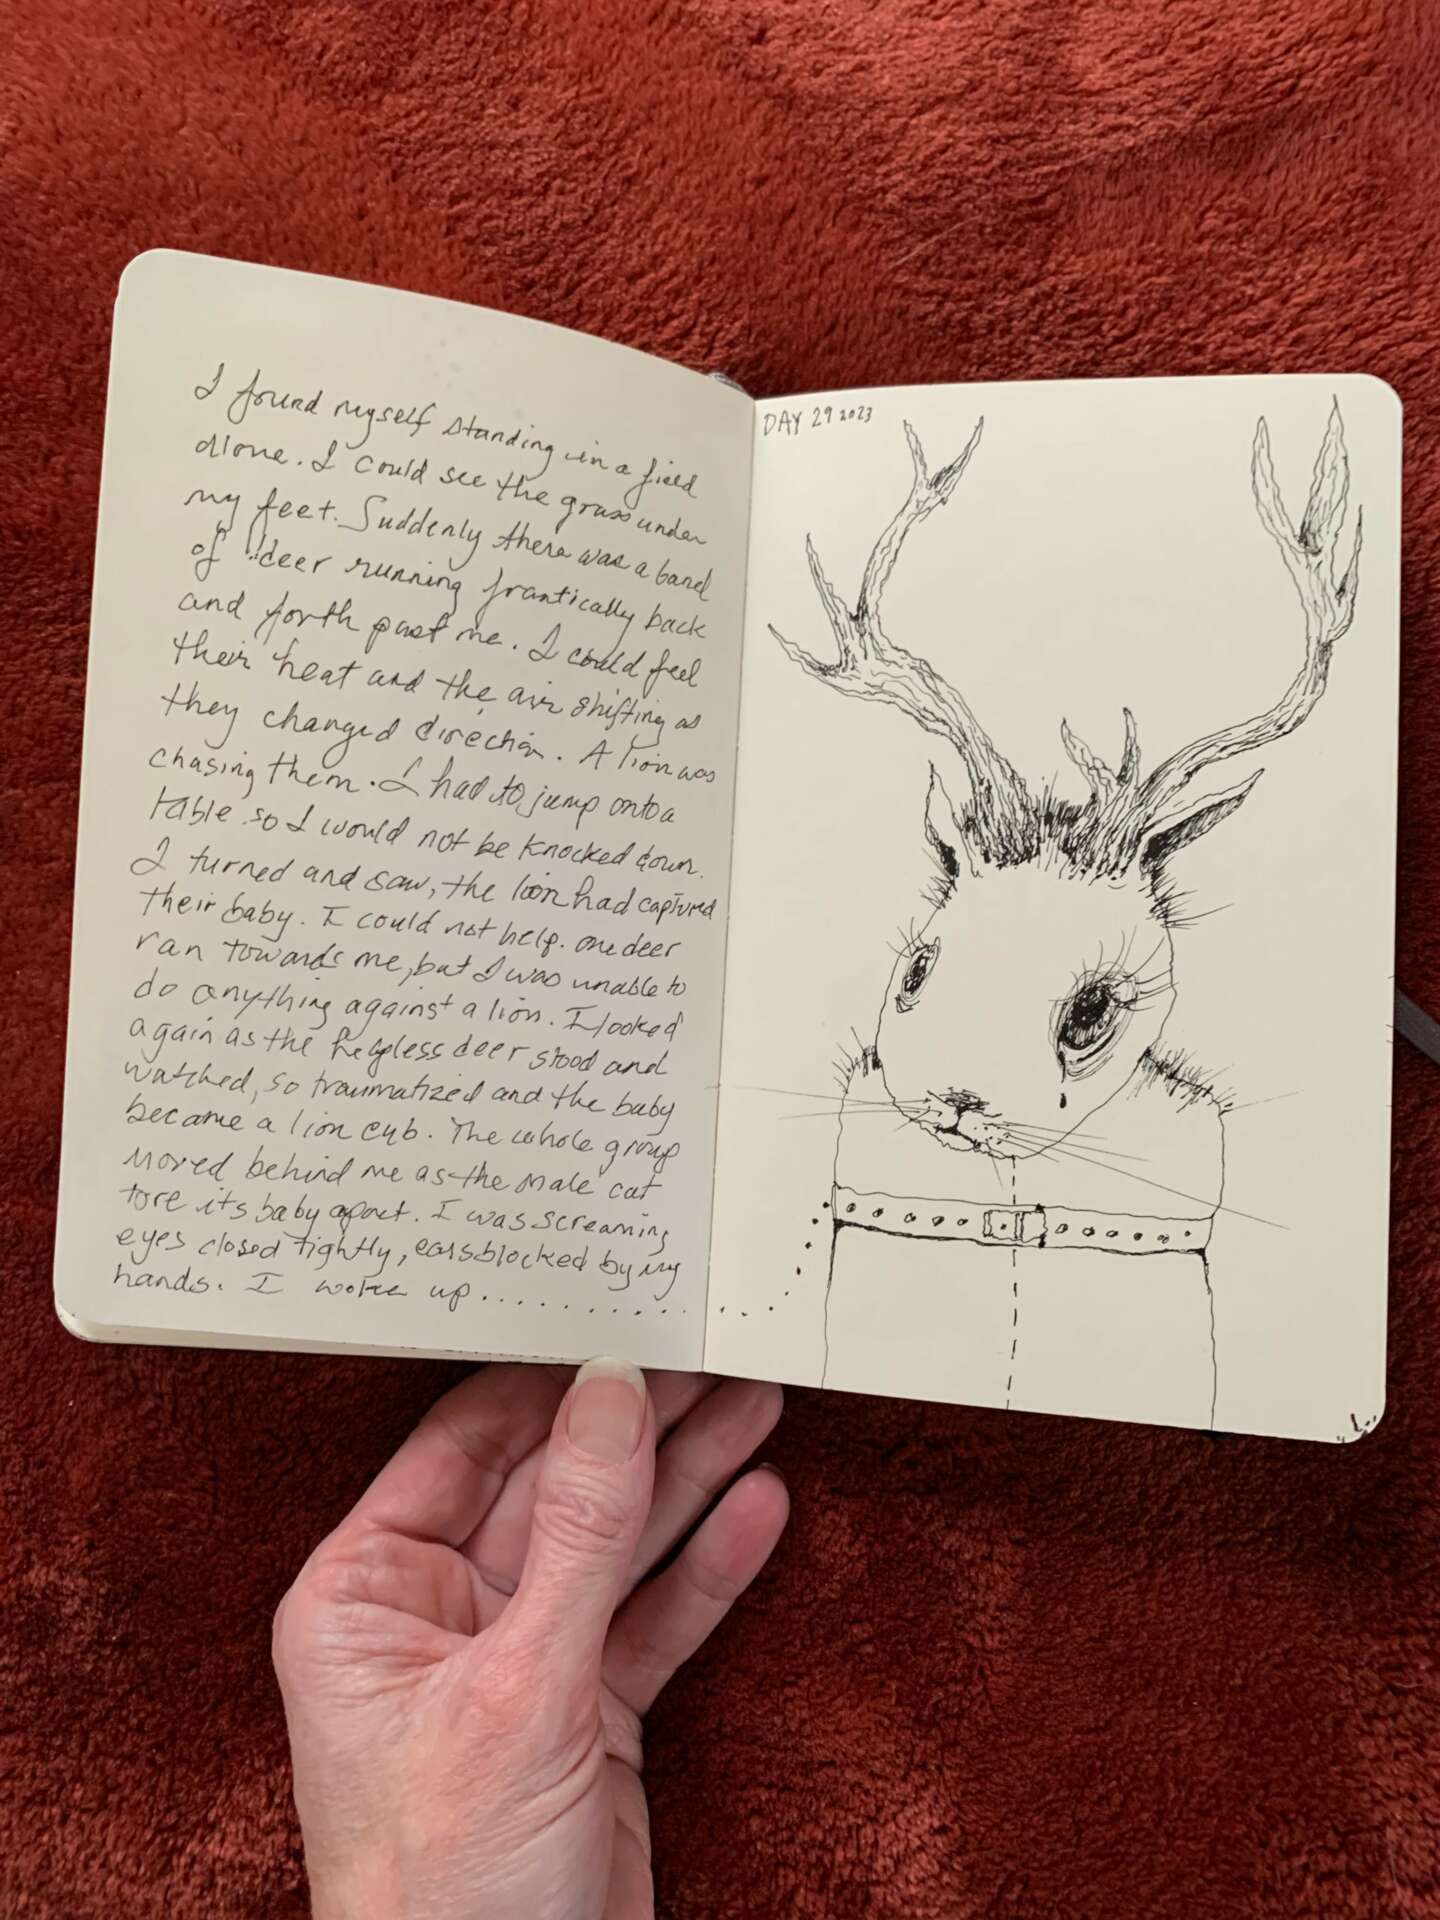 I found myself standing in a field
alone. I could see the grass under
my feet. Suddenly there was a band
of deer running frantically back
and forth past me. I could feel
their heat and the air shifting as
they changed direction. A lion was
chasing them. I had to jump onto a
table so I would not be knocked down.
I turned and saw, the lion had captured
their baby. I could not help. one deer
ran towards me, but I was unable to
do anything against a lion. I looked
again as the helpless deer stood and
watched, so traumatized and the baby
became a lion cub. The whole group
moved behind me as the male cat
tore its baby apart. I was screaming
eyes closed tightly, ears blocked by my
hands. I woke up . . . . . . . . . . . . . .
DAY 29 2023